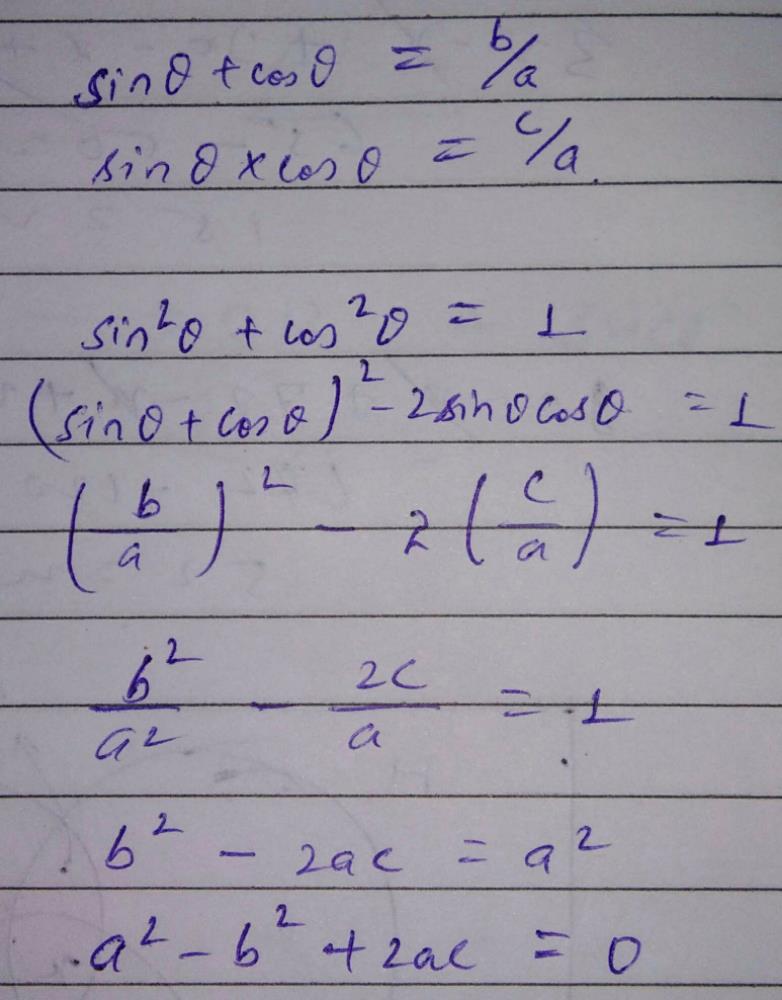 sinθ + cosθ = b/a
sinθ × cosθ = c/a.
sin²θ + cos²θ = 1
(sinθ + cosθ)² - 2sinθcosθ = 1
(b/a)² - 2(c/a) = 1
b²/a² - 2c/a = 1
b² - 2ac = a²
a² - b² + 2ac = 0